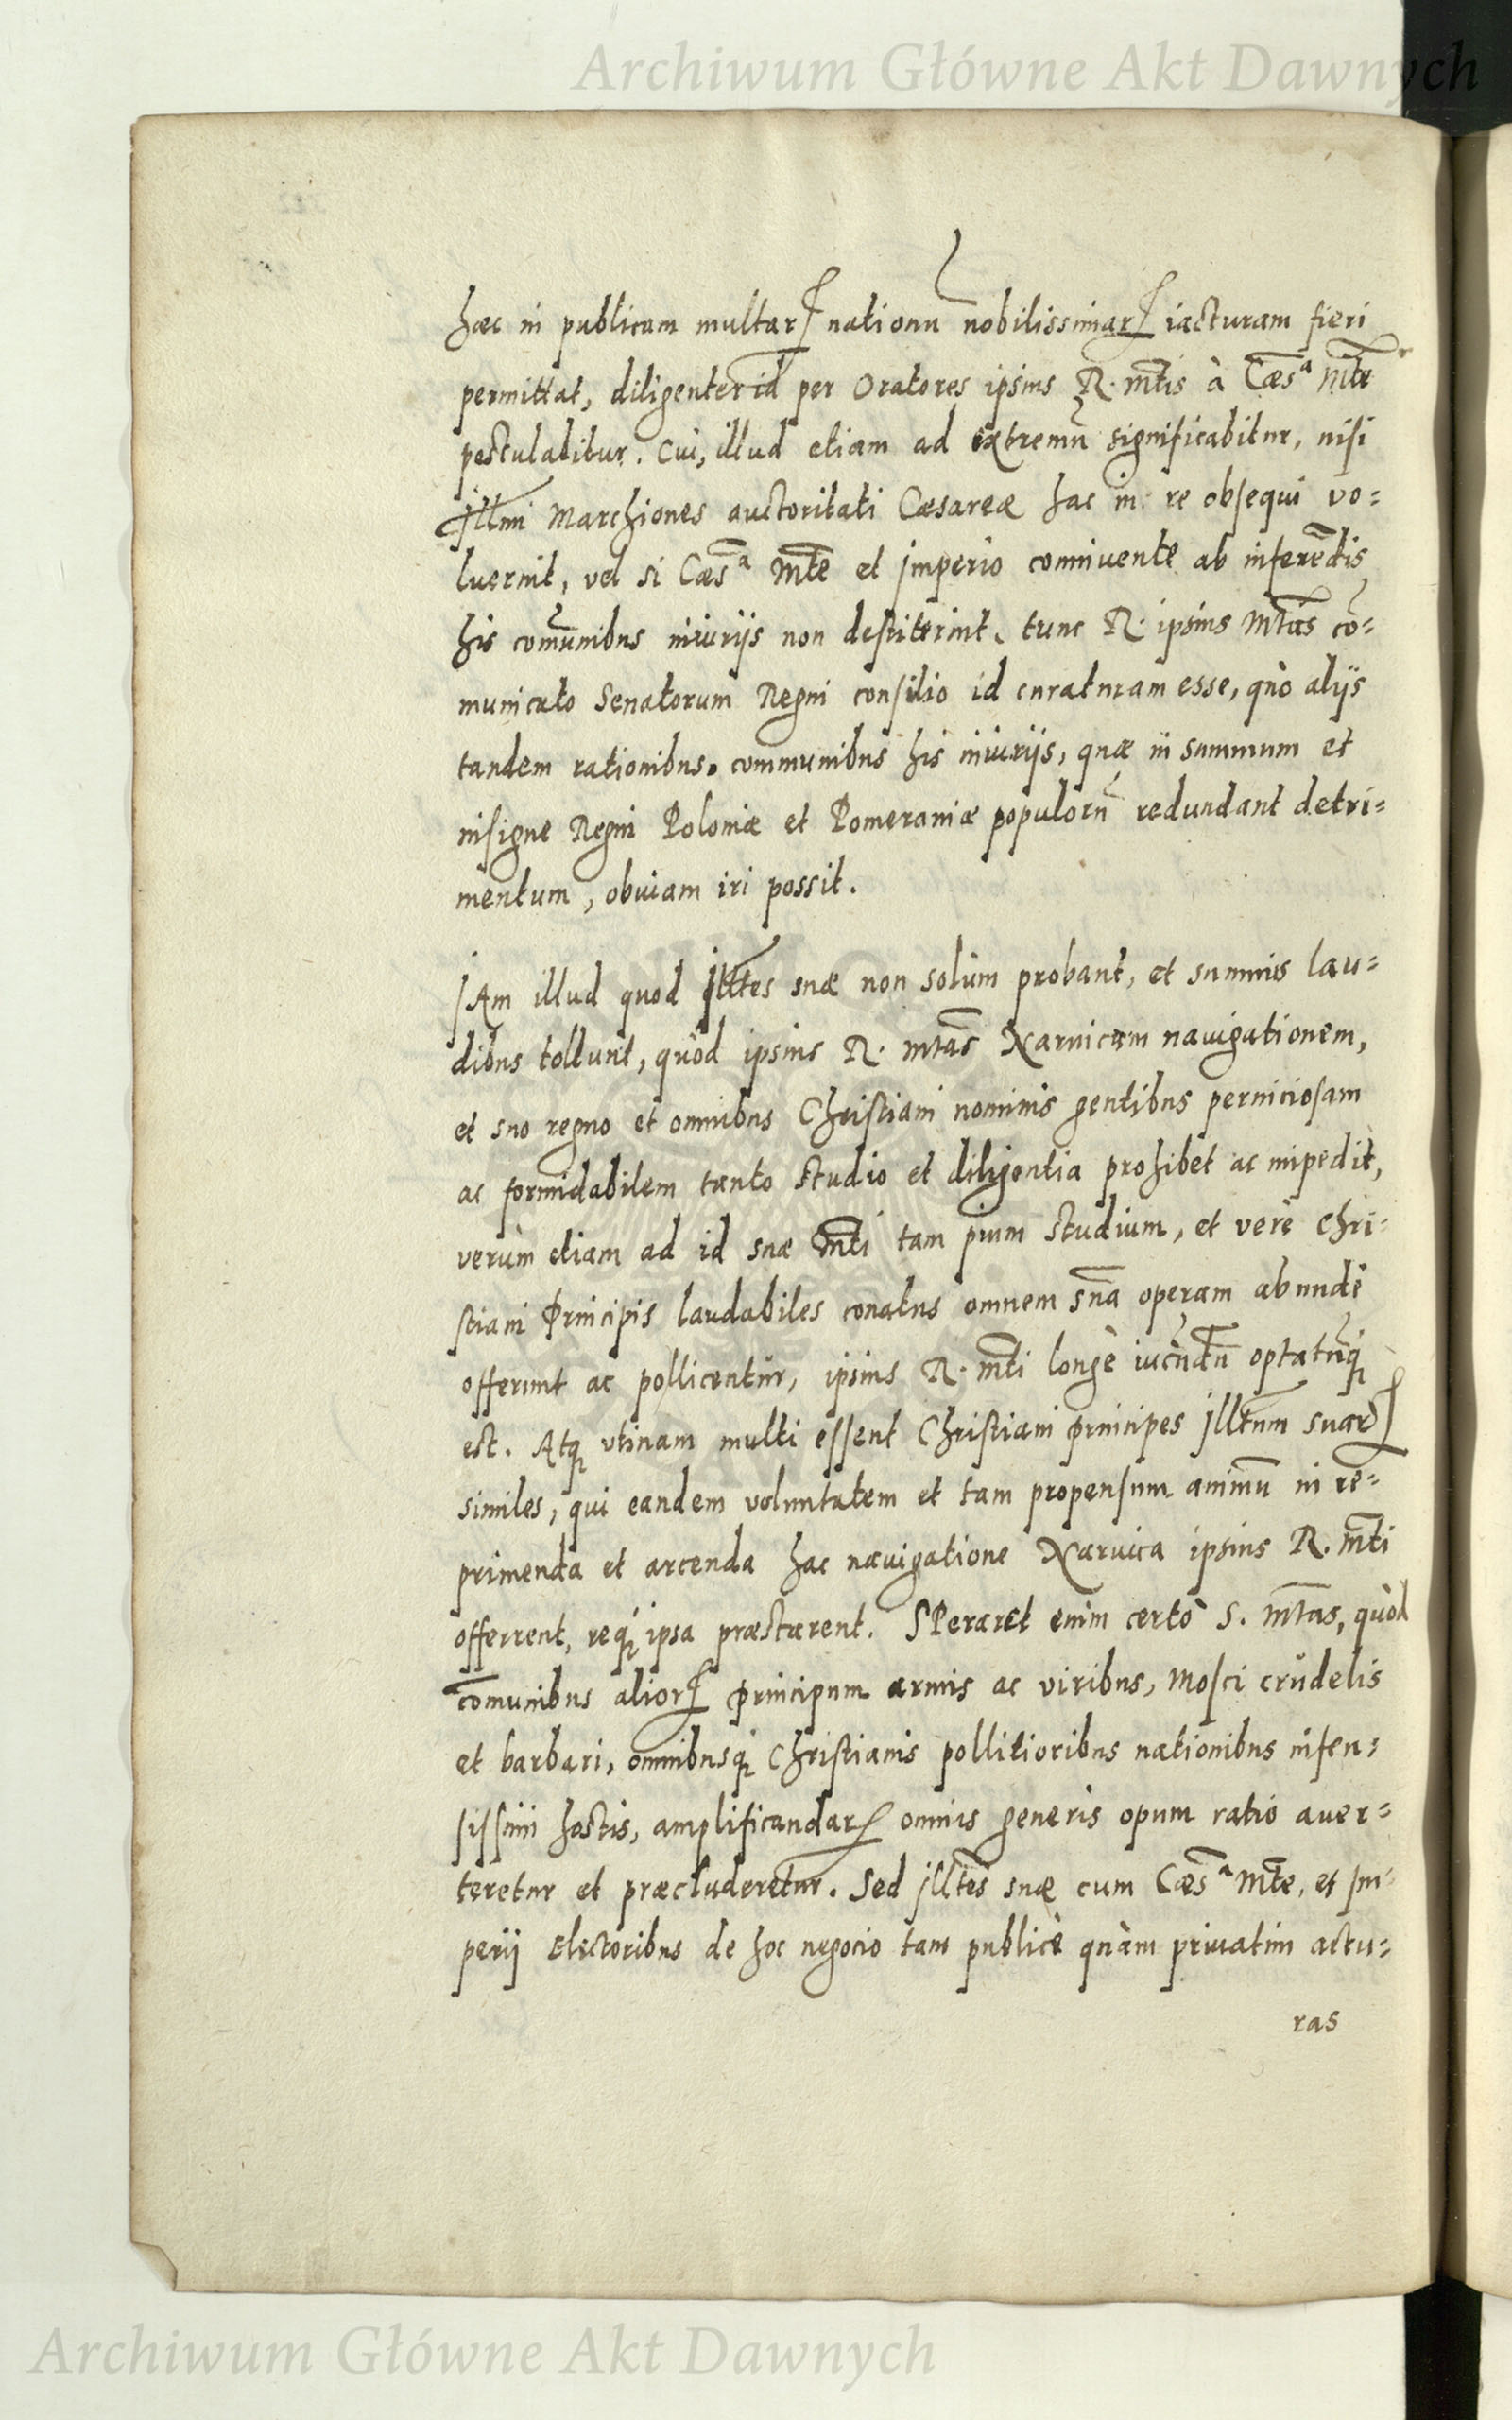 Archiwum Główne Akt Dawnych
haec in publicam multarꝝ nationū nobilissimarꝝ iacturam fieri
permittat, diligenter id per Oratores ipsius R. mtis à Caesa Mte
postulabitur. Cui, illud etiam ad extremū significabitur, nisi
Illmi Marchiones auctoritati Caesareæ hac in re obsequi vo=
luerint, vel si Caesa Mte et imperio connivente ab inferēdis
his comunibus iniurijs non destiterint, tunc R. ipsius Mtas cō=
municato Senatorum Regni consilio id curaturam esse, quò alijs
tandem rationibus, communibus his iniurijs, quæ in summum et
insigne Regni Poloniæ et Pomeraniæ populorū redundant detri=
mentum, obviam iri possit.
IAm illud quod Illtes suæ non solùm probant, et summis lau=
dibus tollunt, quòd ipsius R. mtas Narvicam navigationem,
et suo regno et omnibus Christiani nominis gentibus perniciosam
ac formidabilem tanto studio et diligentia prohibet ac impedit,
verùm etiam ad id suæ mti tam pium studium, et verè Chri=
stiani Principis laudabiles conatus omnem suā operam abundè
offerunt ac pollicentur, ipsius R. mti longè iucūdū optatūq́
est. Atq utinam multi essent Christiani principes Illtum suarꝝ
similes, qui eandem voluntatem et tam propensum animū in re=
primenda et arcenda hac navigatione Narvica ipsius R. mti
offerrent, req́ ipsa præstarent. SPeraret enim certò S. mtas, quòd
cōmunibus aliorꝝ principum armis ac viribus, Mosci crudelis
et barbari, omnibusq́ Christianis pollitioribus nationibus infen=
sissimi hostis, amplificandarꝝ omnis generis opum ratio aver=
teretur et præcluderetur. Sed Illtes suæ cum Caesa Mte, et Im=
perij Electoribus de hoc negocio tam publicè quàm privatim actu=
ras
Archiwum Główne Akt Dawnych